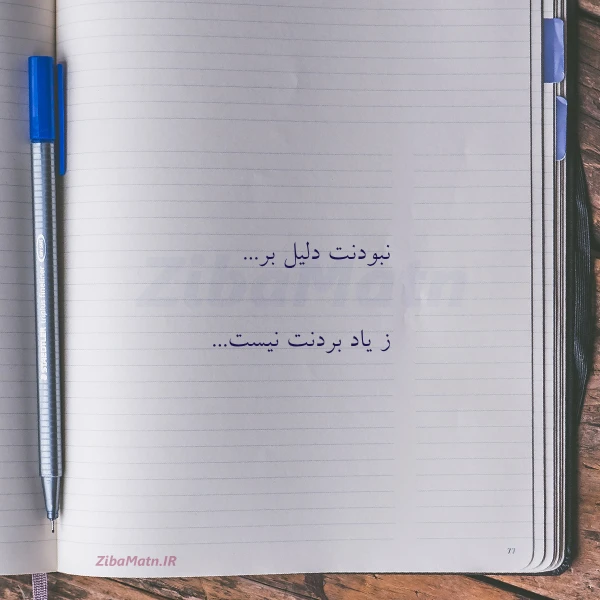 نبودنت دلیل بر...
ZibaMatn
ز یاد بردنت نیست...
ZibaMatn.IR
77